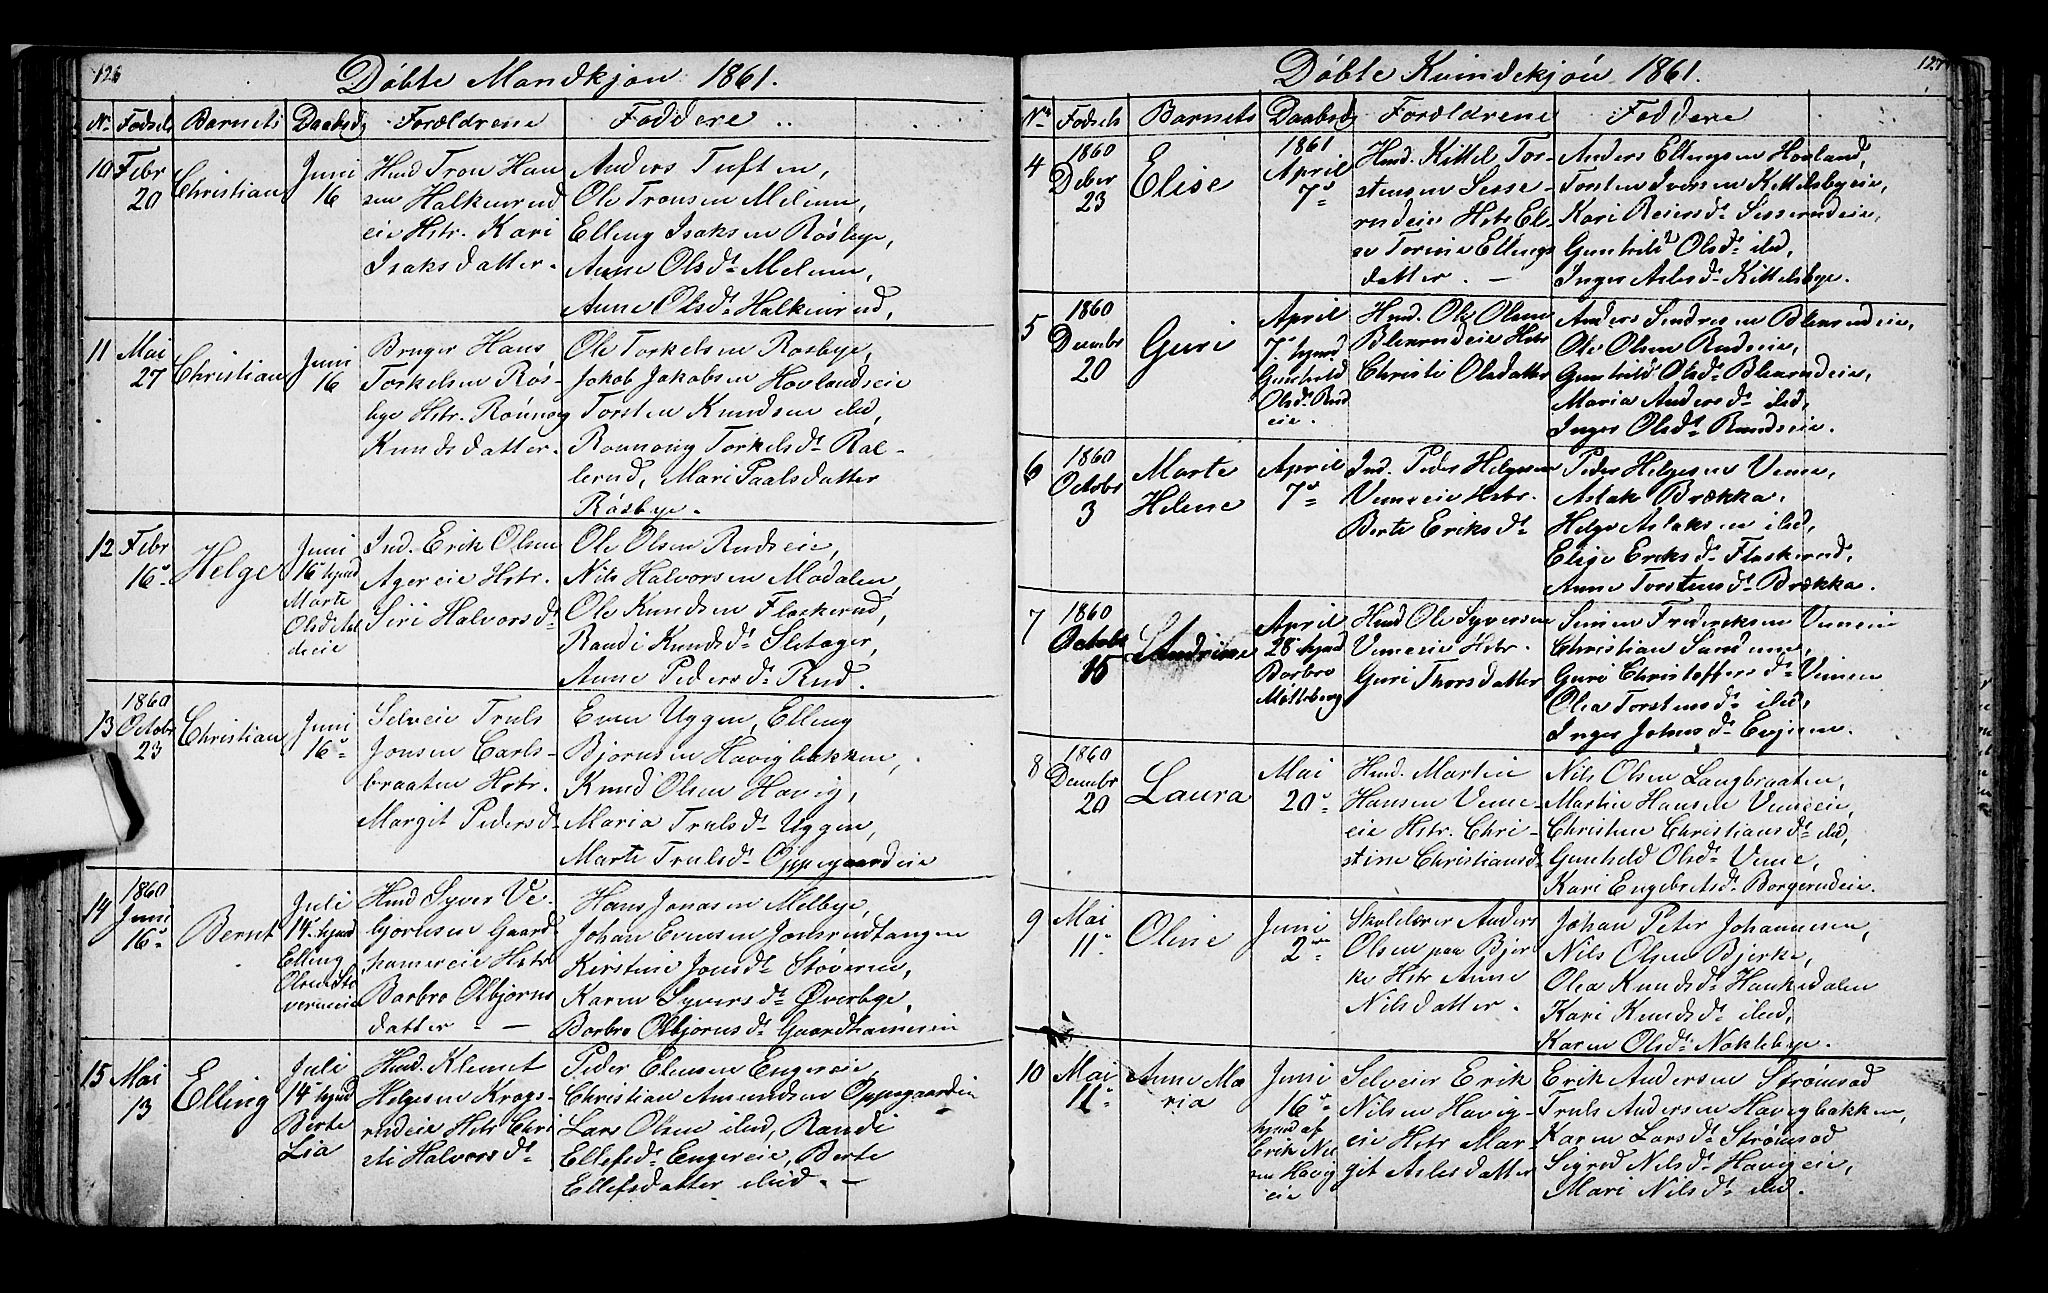 126
Döbte Mandkjön 1861.
No Födsels Barnets Daabsdg Forældrene Faddere
10 Febr 20 Christian Juni 16
Huusd Tron Han
sen Halkinrud
eie Hstr. Kari
Isaksdatter.
Anders Tuften,
Ole Tronsen Melum,
Elling Isaksen Rösbye,
Anne Olsdr Melum,
Anne Olsdr Halkinrud,
11 Mai 27 Christian Juni 16
Bruger Hans
Torkelsen Rös-
bye Hstr. Rönnog
Knudsdatter.
Ole Torkelsen Rosbye,
Jakob Jakobsen Hovlandseie
Torsten Knudsen ibid,
Ronnoug Torkelsdr Ral-
lerud, Mari Paalsdatter
Rösbye.
12 Febr 16 Helge
Juni
16 hjmd
Marte
Olsd
deeie
Ind. Erik Olsen
Agereie Hstr.
Siri Halvorsdr
Ole Olsen Rudseie,
Nils Halvorsen Modalen,
Ole Knudsen Flaskerud,
Randi Knudsdr Sletager,
Anne Pedersdr Rud.
13 1860 Octobr 23 Christian Juni 16
Selveie Truls
Jonsen Carls-
braaten Hstr.
Margit Pedersd
Even Uggen, Elling
Bjornsen Havigbakken,
Knud Olsen Havig,
Maria Trulsdr Uggen,
Marte Trulsdr Oppegaardeie
14 1860 Juni 16 Bernt
Juli
14 hjmd
Elling
Olsen Stö
verneeie
Huusd Syver Ve-
bjornsen Gaard
hamereie Hstr
Barbro Asbjorns
datter
Hans Jonasen Melbye,
Johan Evensen Jodsrudtangen
Kirstine Jonsdr Stoverne,
Karen Syversdr Överbye,
Barbro Asbjornsdr Gaardhamereie
15 Mai 13 Elling
Juli
14 hjmd
Berte
Lia
Huusd. Klemet
Helgesen Krogs-
rudeie Hstr Chri
sti Halvorsdr
Peder Elensen Engereie,
Christian Amundsen Oppegaardeie
Lars Olsen ibid, Randi
Ellefsdr Engereie, Berte
Ellefsdatter ibid.
127
Döbte Kvindekjön 1861.
No Födsels Barnets Daabsdg Forældrene Faddere
4 1860 Dcber 23 Elise 1861 April 7
Huusd. Kittel Tor-
stensen Sesse-
rudeie Hstr El-
se Torine Ellings
datter.
Anders Ellingsen Hovland,
Torsten Iversen Kittelsbyeie,
Kari Reiersdr Sesserudeie,
Gunhild Olsdr ibid,
Inger Aslesdr Kittelsbye.
5 1860 Decembr 20 Guri
April
7 hjmd
Gunhild
Olsdr Rud
eie.
Huusd. Ole Olsen
Blearudeie Hstr
Christi Olsdatter
Anders Sindresen Blearudeie,
Ole Olsen Rudeie,
Gunhild Olsdr Blearudeie,
Maria Andersdr ibid,
Inger Olsdr Rudseie.
6 1860 Octobr 3 Marte Helene April 7
Ind. Peder Helgesen
Vemeeie Hstr.
Berte Eriksdr
Peder Helgesen Veme,
Aslak Brækka,
Helge Aslaksen ibid,
Elise Eriksdr Flaskerud,
Anne Torstensdr Brækka.
7 1860 Octobr 15 Andrine
April
28 hjmd
Barbro
Möttoberg
Huusd Ole Syversen
Vemeeie Hstr.
Guri Thorsdatter
Simen Frideriksen Vemeeie
Christian Sandum,
Guri Christoffersdr Vemen
Olea Torstensdr ibid,
Inger Johnsdr Evjeene.
8 1860 Decembr 20 Laura Mai 20
Huusd. Martin
Hansen Veme-
eie Hstr. Chri-
stine Christiansd
Nils Olsen Langbraaten,
Martin Hansen Vemeeie,
Christine Christiansdr ibid,
Gunhild Olsdr Veme,
Kari Engebretsdr Borgerudeie.
9 Mai 11 Oline Juni 2
Skolelærer Anders
Olsen paa Bjer
ke Hstr Anne
Nilsdatter.
Johan Peter Johannesen,
Nils Olsen Bjerke,
Olea Knudsdr Haukedalen
Kari Knudsdr ibid,
Karen Olsdr Noklebye.
10 Mai 11 Anne Ma ria
Juni
16
hjmd af
Erik Nil
sen Havig
eie
Selveier Erik
Nilsen Havig-
eie Hstr Mar-
git Aslesdatter
Erik Andersen Strömsod
Truls Andersen Havigbakken,
Karen Larsdr Strömsod
Sigrid Nilsdr Havigeie,
Mari Nilsdr ibid.